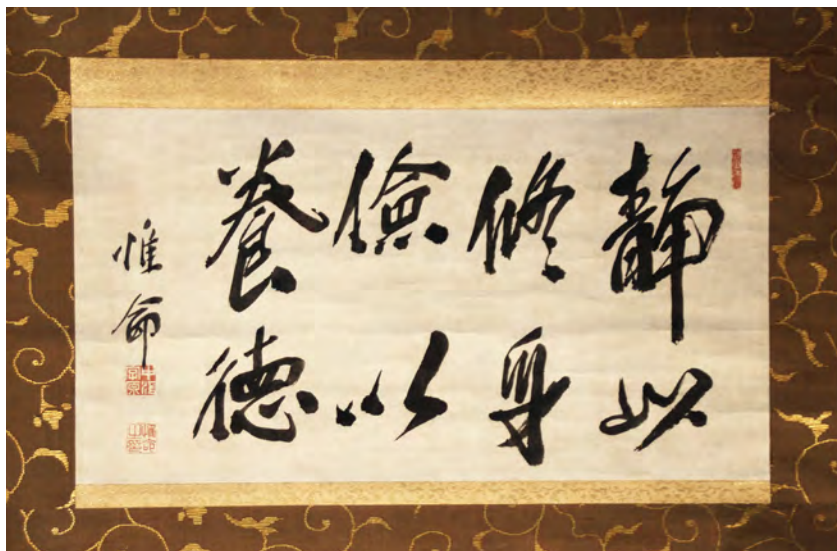 静以
修身
儉以
養德
惟命